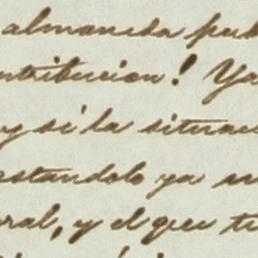 almoneda pub
ntribucion! Ya
y si la situac
estandolo ya
ral, y el que t